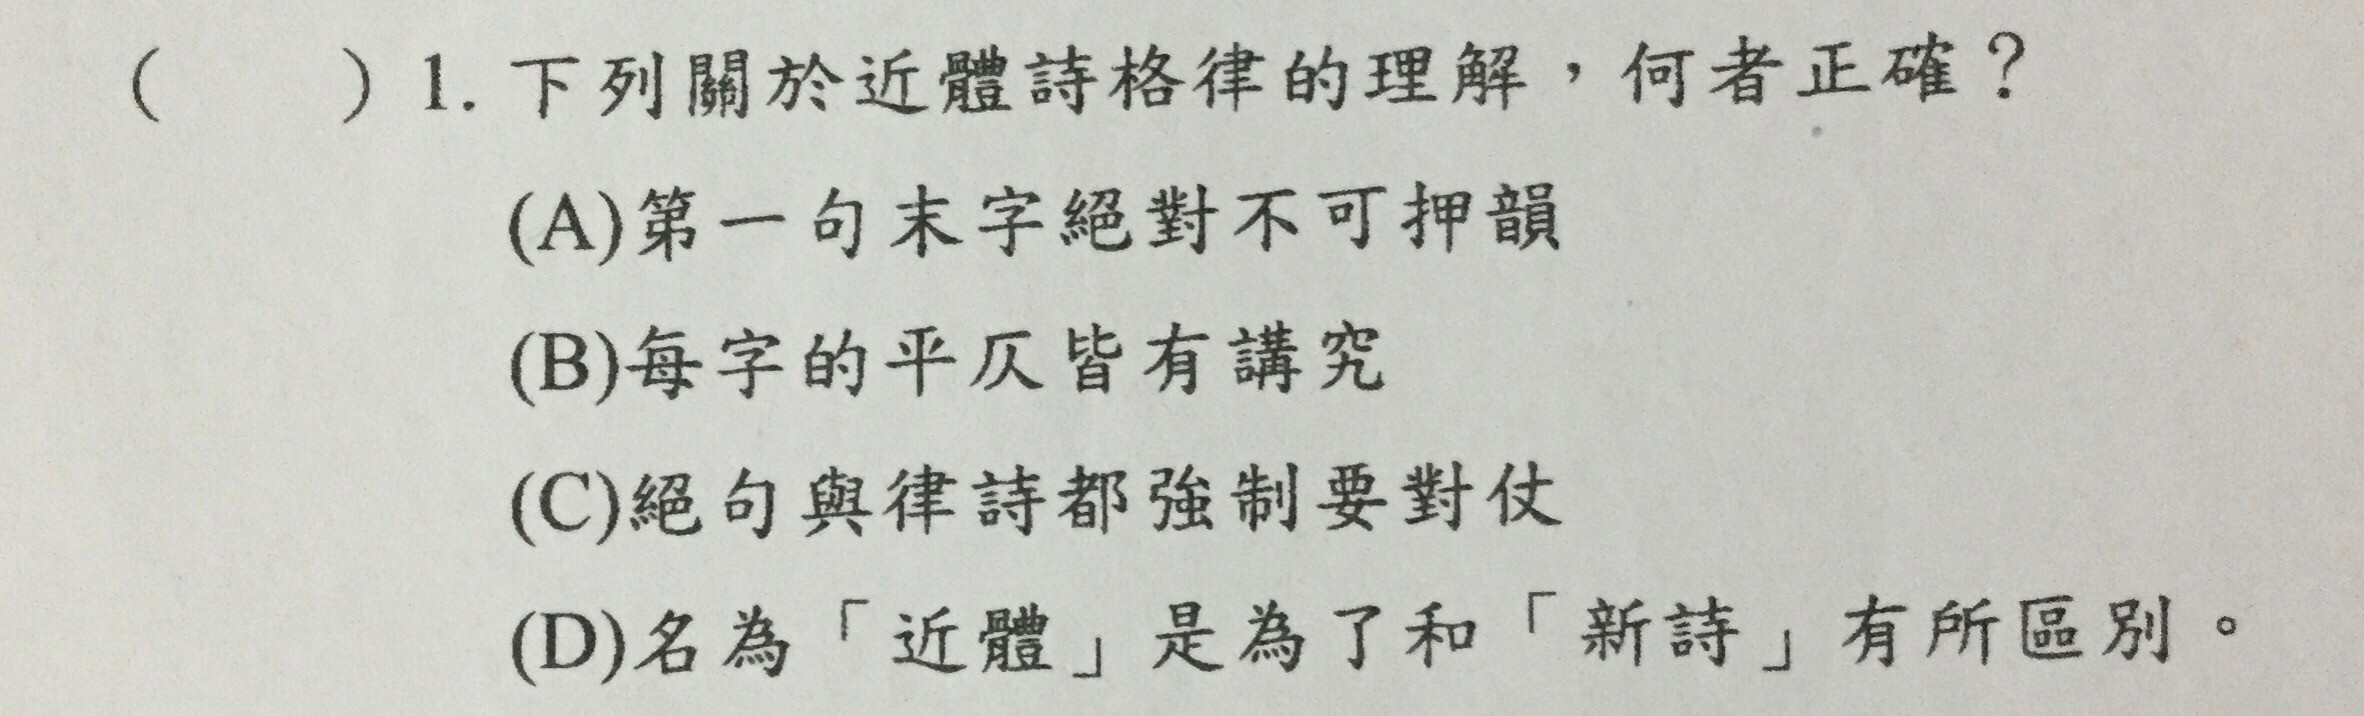 (　　) 1. 下列關於近體詩格律的理解，何者正確？
(A)第一句末字絕對不可押韻
(B)每字的平仄皆有講究
(C)絕句與律詩都強制要對仗
(D)名為「近體」是為了和「新詩」有所區別。